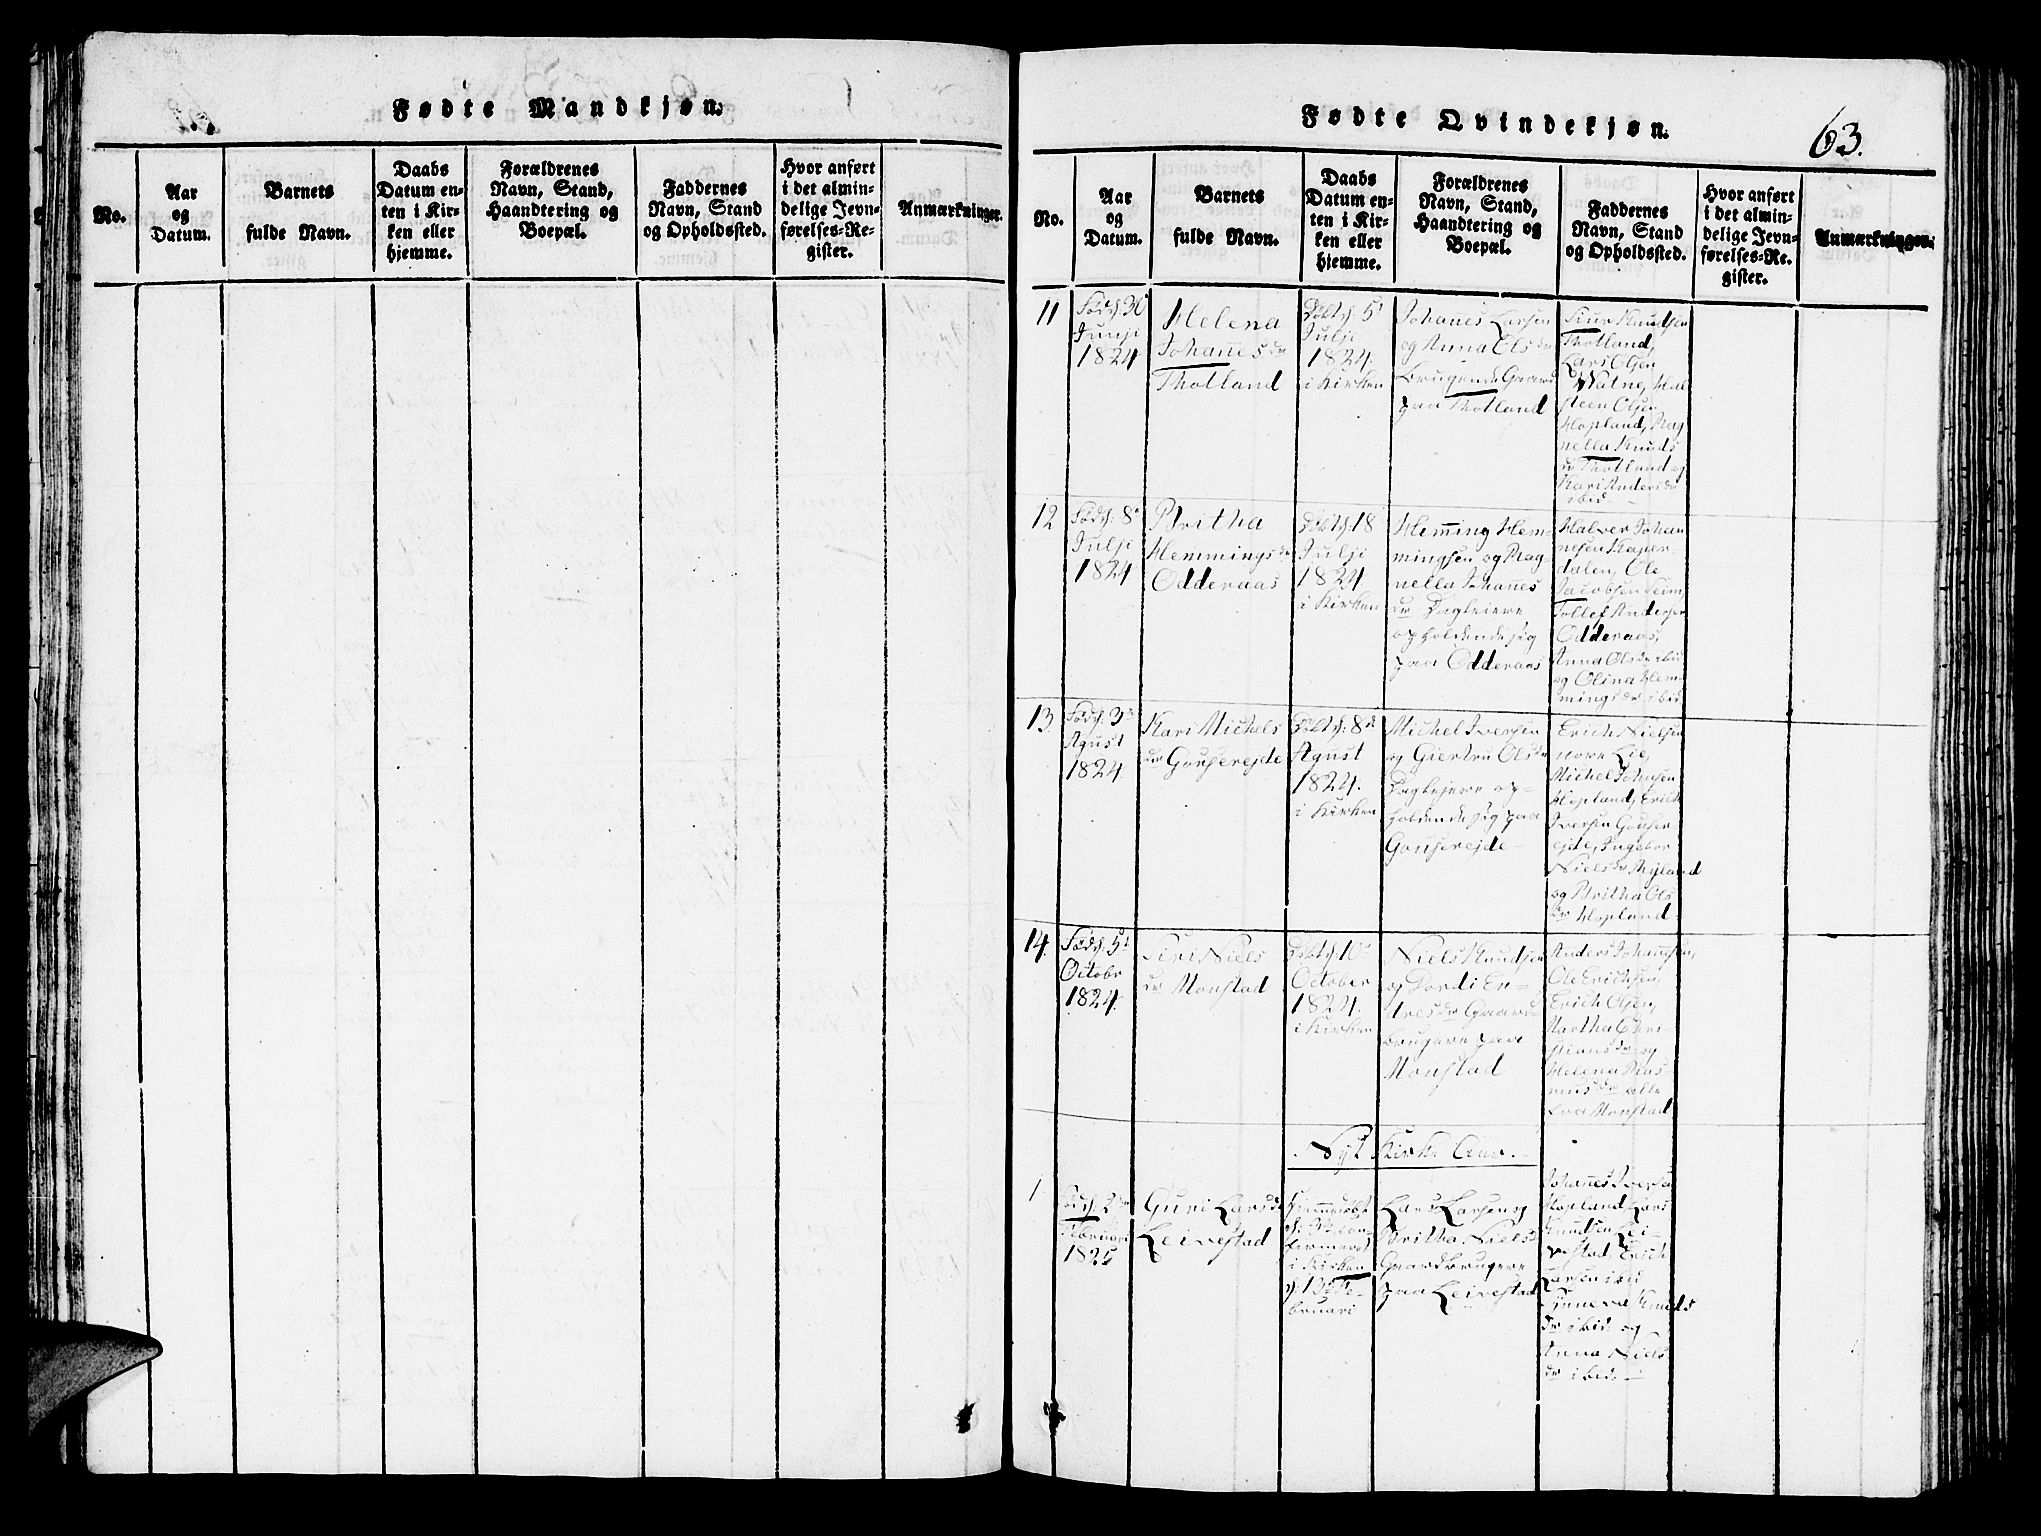 Fødte Mandkjøn.
No.
Aar
og
Datum.
Barnets
fulde Navn.
Daabs
Datum en-
ten i Kir-
ken eller
hjemme.
Forældrenes
Navn, Stand,
Haandtering og
Boepæl.
Faddernes
Navn, Stand
og Opholdssted.
Hvor anført
i det almin-
delige Jevn-
førelses-Re-
gister.
Anmærkninger.
Fødte Qvindekjøn.
63.
No.
Aar
og
Datum.
Barnets
fulde Navn.
Daabs
Datum en-
ten i Kir-
ken eller
hjemme.
Forældrenes
Navn, Stand,
Haandtering og
Boepæl.
Faddernes
Navn, Stand
og Opholdssted.
Hvor anført
i det almin-
delige Jevn-
førelses-Re-
gister.
Anmærkninger.
11
Fød d: 30
Junji
1824
Helena
Johannesdr
Thotland
Døbt d: 5t
Julji
1824.
i Kirken
Johanes Larsen
og Anna Olsdr
brugende Gaard
paa Thotland
Knudsen
Thotland,
Lars Olsen
Watne, Hal
steen Olsen
Hopland, Rag
nella Knuds
dr Thotland og
Kari Andersdr
ibid
12
Fød d: 8d
Julji
1824
Britha
Hemmingsdr
Odderaas
Døbt d: 18
Julji
1824
i Kirken
Hemming Hem-
mingsen og Rag
nella Johanes
dr Dagleiere
opholdende sig
paa Odderaas
Halvor Johan
nesen
dalen, Ole
Jacobsen Seim
Tollef Andersen
Odderaas,
Anna Olsdr ibid
og Olina Hem-
mingsdr ibid
13.
Fød d: 3d
Agust
1824.
Kari Michels
dr Gouserejde
Døbt d: 8d
Agust
1824.
i Kirken
Michel Iversen
og Giertru Olsdr
Daglejere op-
holdende sig paa
Gouserejde
Erich Nielsen
nore Lie,
Michel Johnsen
Hopland, Erich
Iversen Gouser
ejde, Ingebor
Nielsdr Myland
og Britha Ols
dr Hopland
14.
Fød d: 5t
Octobr
1824.
Siri Niels
dr Monstad
Døbt d: 10d
October
1824.
i Kirken
Niels Knudsen
og Dordi En-
dresdr Gaard
brugere paa
Monstad
Anders Johannesen,
Ole Erichsen,
Erich Olsen,
Martha Chri-
stiansdr og
Helena Ras
musdr alle
fra Monstad
Nyt Kirke Aar.
1
Fød d: 2den
Februari
1825
Guri Larsdr
Leivestad
Hjemmedøbt
d: 3d Con-
firmeret
i Kirken
d: 13d Fe-
bruari
Lars Larsen og
Britha Nielsdr
Gaardbrugere
paa Leivestad
Johanes Iversen
Hopland, Lars
Knudsen Lei-
vestad, Erich
Larsen ibid
Synneva Knuds
dr ibid og
Anna Niels
dr ibid.